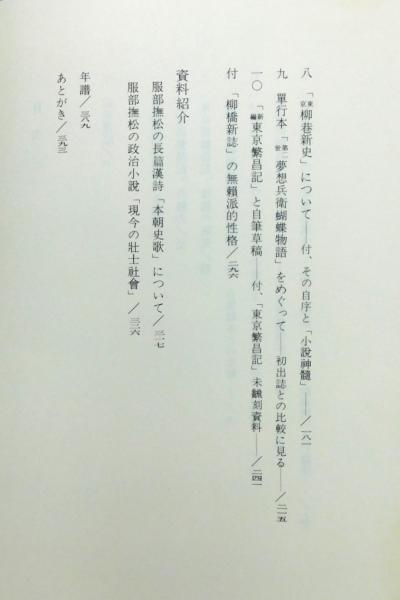 八 「東京柳巷新史」について――付、その自序と「小説神髄」――/一八一
九 單行本「第二世夢想兵衛蝴蝶物語」をめぐって――初出誌との比較に見る――/二一五
一〇 「新編東京繁昌記」と自筆草稿――付、「東京繁昌記」未飜刻資料――/二四一
付 「柳橋新誌」の無賴派的性格/二九六
資料紹介
服部撫松の長篇漢詩「本朝史歌」について/三一七
服部撫松の政治小説「現今の壯士社會」/三三六
年譜/三八九
あとがき/三九三